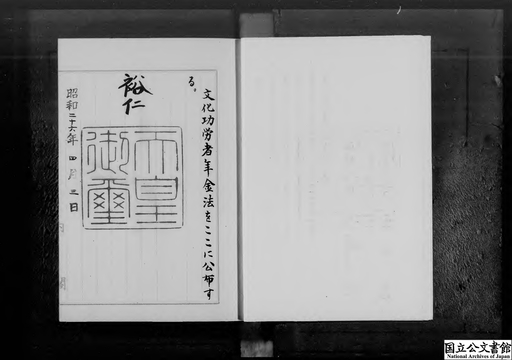 文化功労者年金法をここに公布す
る。
裕仁
天皇
御璽
昭和二十六年四月三日
国立公文書館
National Archives of Japan